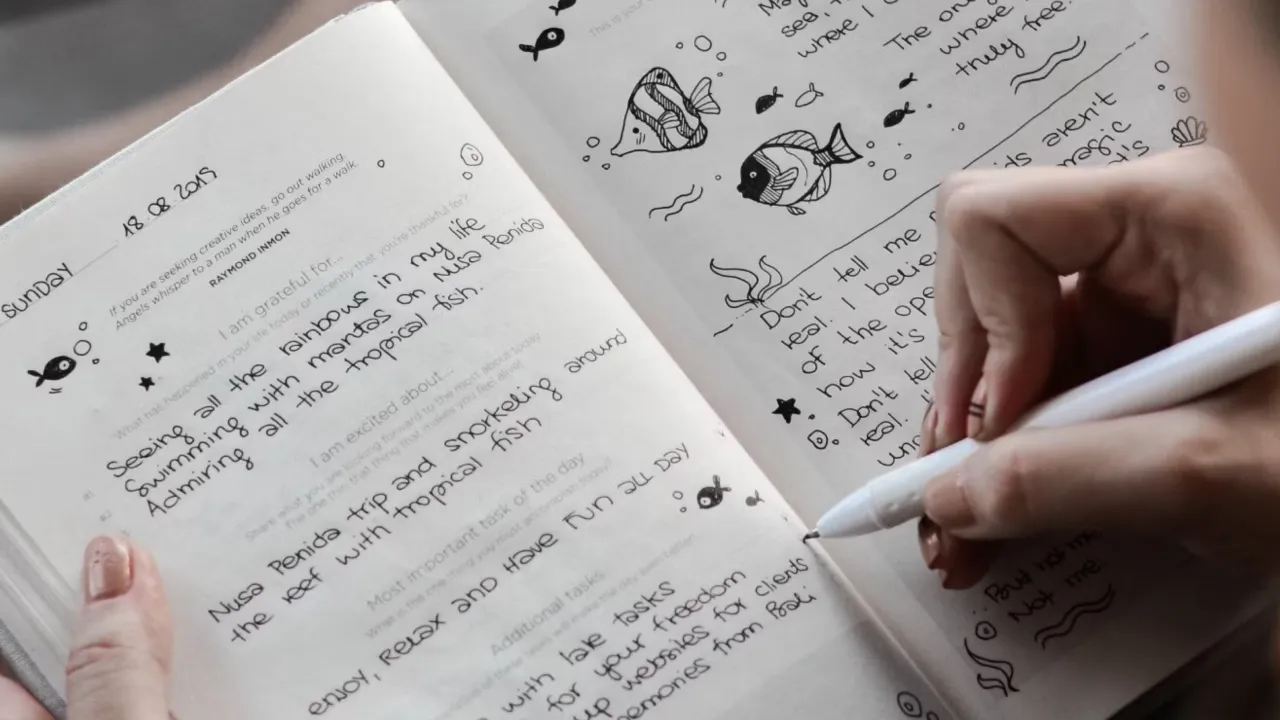 SUNDAY
18.08.2019
If you are seeking creative ideas, go out walking.
Angels whisper to a man when he goes for a walk.
RAYMOND INMON
I am grateful for...
What has happened in your life today or recently that you're thankful for?
Seeing all the rainbows in my life
Swimming with mantas on Nusa Penida
Admiring all the tropical fish.
#1
#2
I am excited about...
Share what you are looking forward to the most about today
The one thing that makes you feel alive!
Nusa Penida trip and snorkeling around
the reef with tropical fish
Most important task of the day
What is the one thing you must accomplish today?
enjoy, relax and have fun all day
Additional tasks
will make the day even better
with lake tasks
for your freedom
up websites for clients
memories from Bali
This is your
sea,
where I
The
where
truly free.
aren't
magic
Don't tell me
real. I
of the
how it's
Don't tell
real.
But not me
Not me